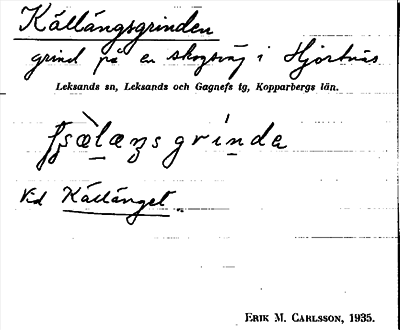 Källängsgrinden
grind på en skogsväg i Hjortnäs
Leksands sn, Leksands och Gagnefs tg, Kopparbergs län.
Vid Källänget.
ERIK M. CARLSSON, 1935.